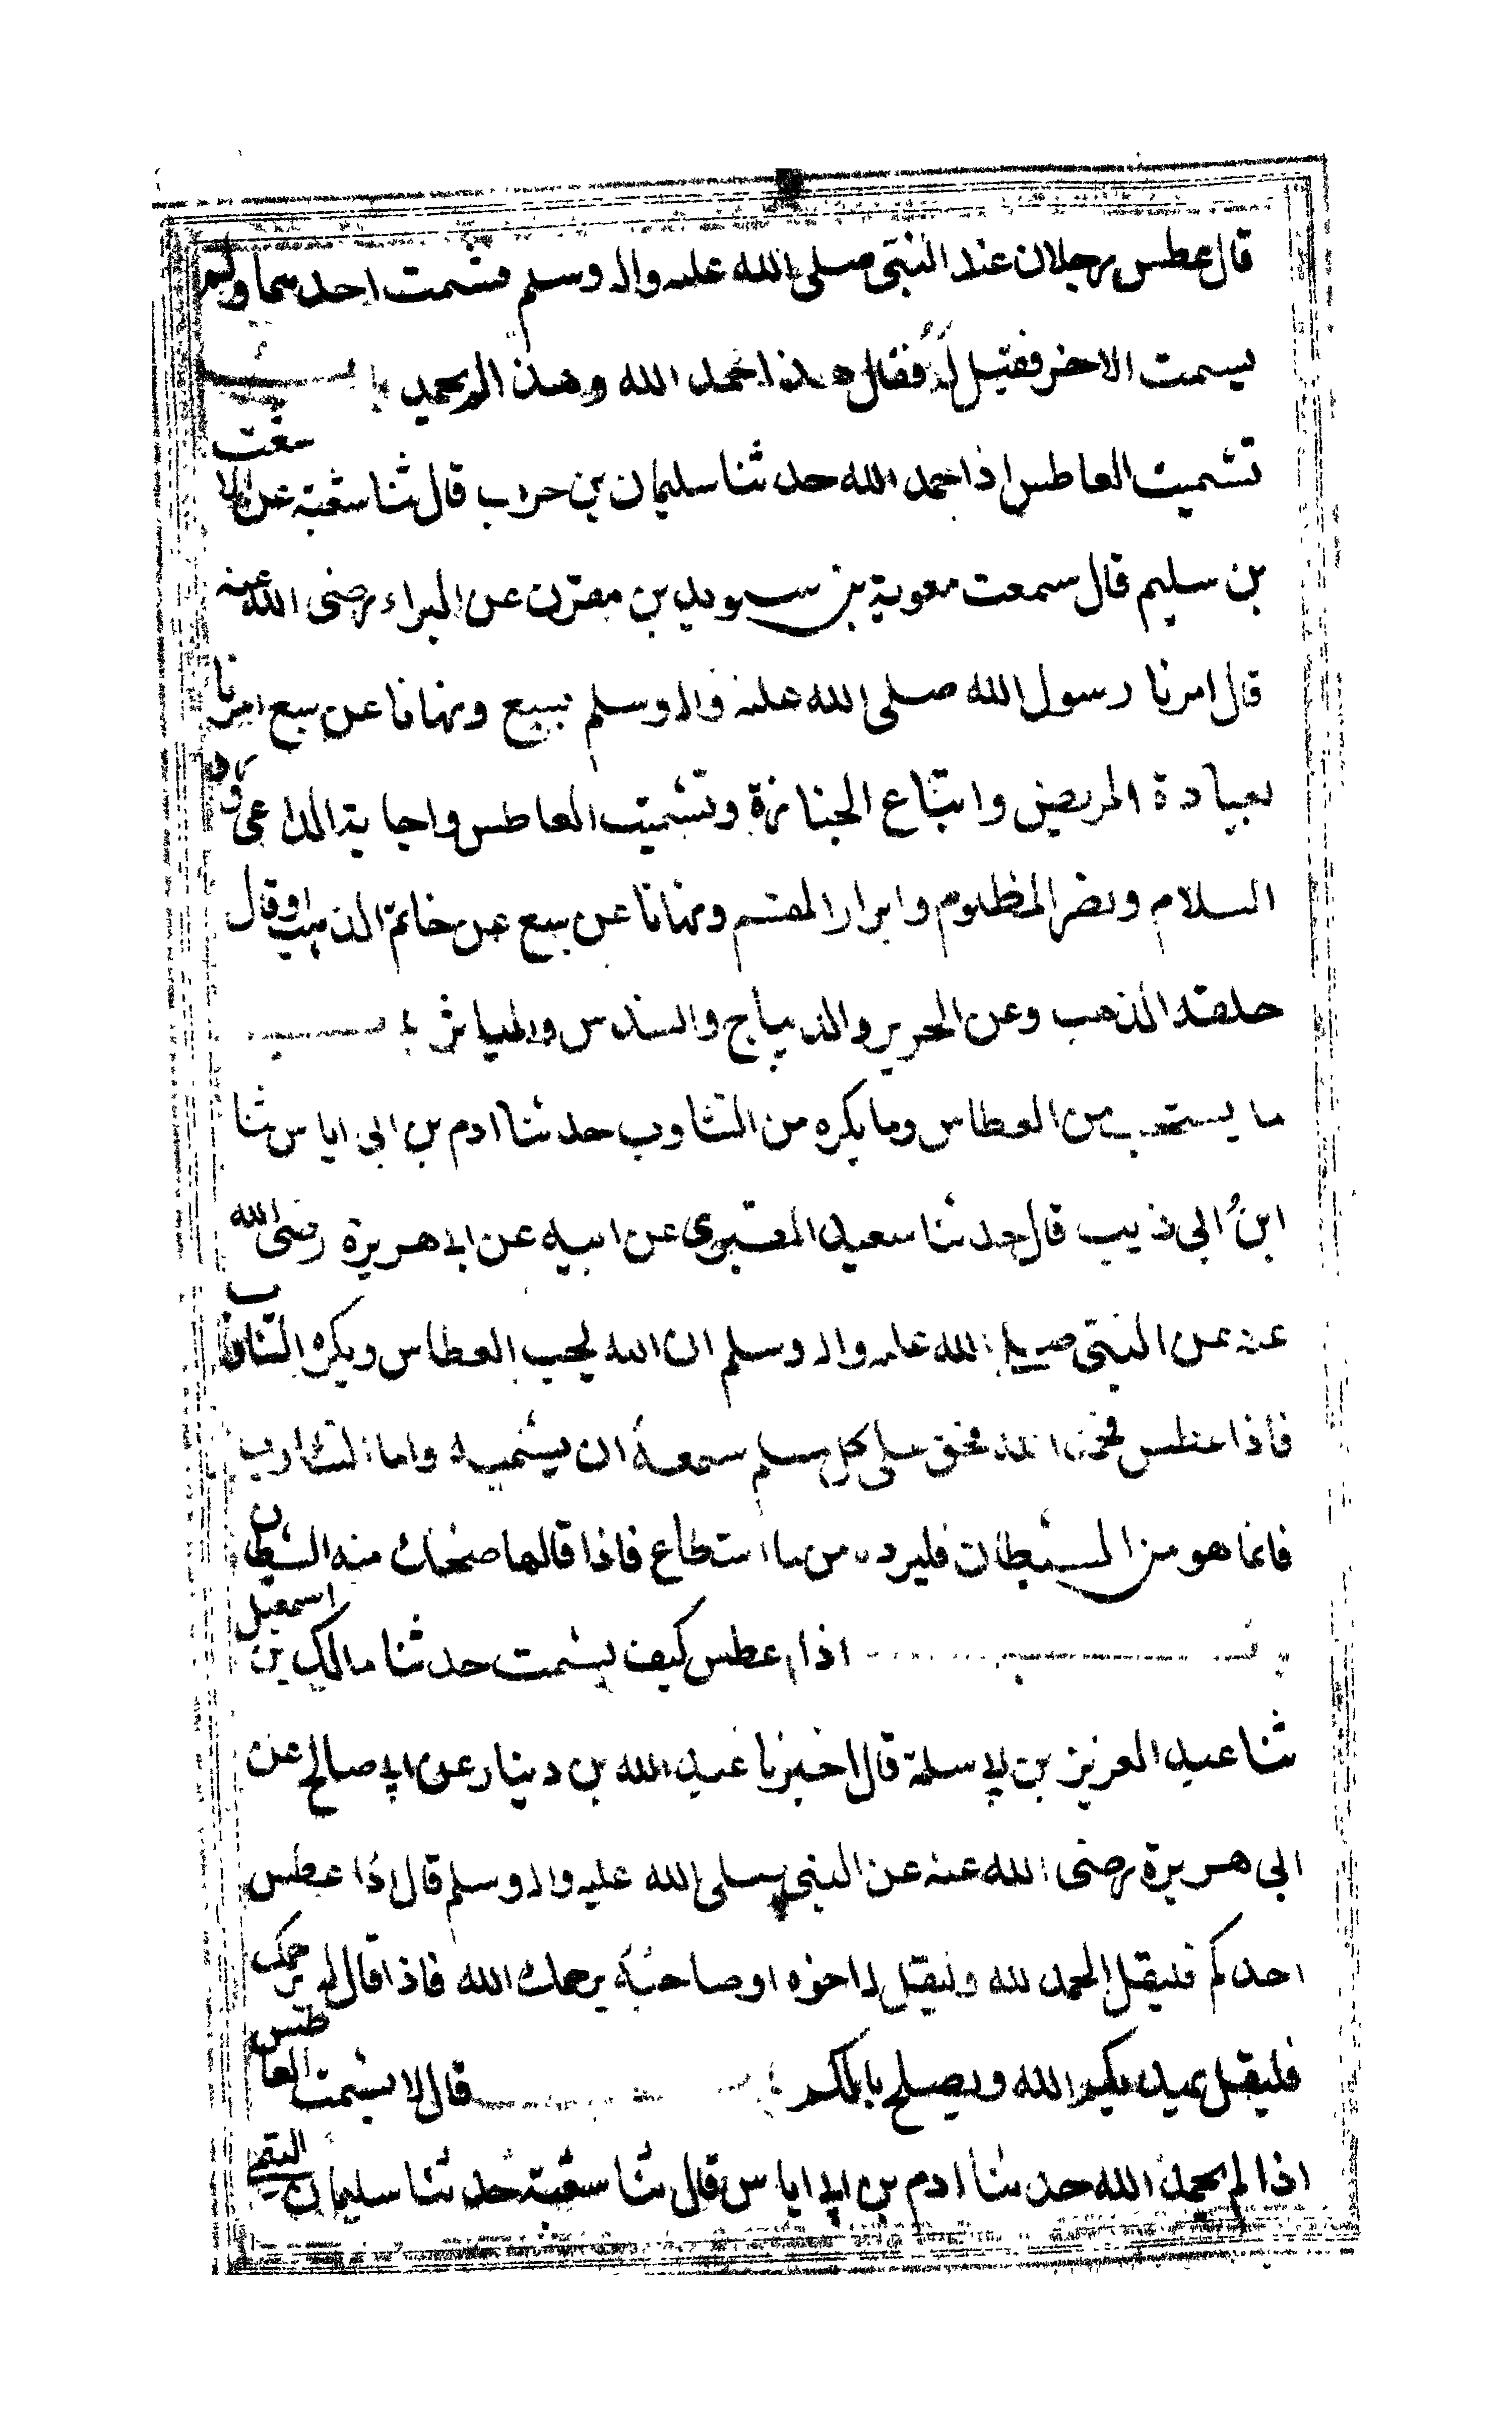 قال عطس رجلان عند النبي صلى الله عليه واله وسلم فشمت احدهما ولم
يسمت الاخر فقيل له فقال هذا حمد الله وهذا لم يحمد باب
تشميت العاطس اذا حمد الله حدثنا سليمان بن حرب قال ثنا شعبة عن الاشعث
بن سليم قال سمعت معوية بن سويد بن مقرن عن البراء رضى الله عنه
قال امرنا رسول الله صلى الله عليه واله وسلم بسبع ونهانا عن سبع امرنا
بعيادة المريض واتباع الجنازة وتشميت العاطس واجابة الداعي ورد
السلام ونصر المظلوم وابرار المقسم ونهانا عن سبع عن خاتم الذهب او قال
حلقة الذهب وعن الحرير والديباج والسندس والمياثر باب
ما يستحب من العطاس وما يكره من التثاوب حدثنا ادم بن ابي اياس ثنا
ابن ابي ذيب قال حدثنا سعيد المقبري عن ابيه عن ابي هريرة رضى الله
عنه عن النبي صلى الله عليه واله وسلم ان الله يحب العطاس ويكره التثاوب
فاذا عطس فحمد الله فحق على كل مسلم سمعه ان يشمته واما التثاوب
فانما هو من الشيطان فليرده ما استطاع فاذا قال ها ضحك منه الشيطان
باب اذا عطس كيف يشمت حدثنا مالك بن اسمعيل
ثنا عبد العزيز بن ابي سلمة قال اخبرنا عبد الله بن دينار عن ابي صالح عن
ابي هريرة رضى الله عنه عن النبي صلى الله عليه واله وسلم قال اذا عطس
احدكم فليقل الحمد لله وليقل له اخوه او صاحبه يرحمك الله فاذا قال له يرحمك
فليقل يهديكم الله ويصلح بالكم قال لا يشمت العاطس
اذا لم يحمد الله حدثنا ادم بن ابي اياس قال ثنا شعبة حدثنا سليمان التيمي